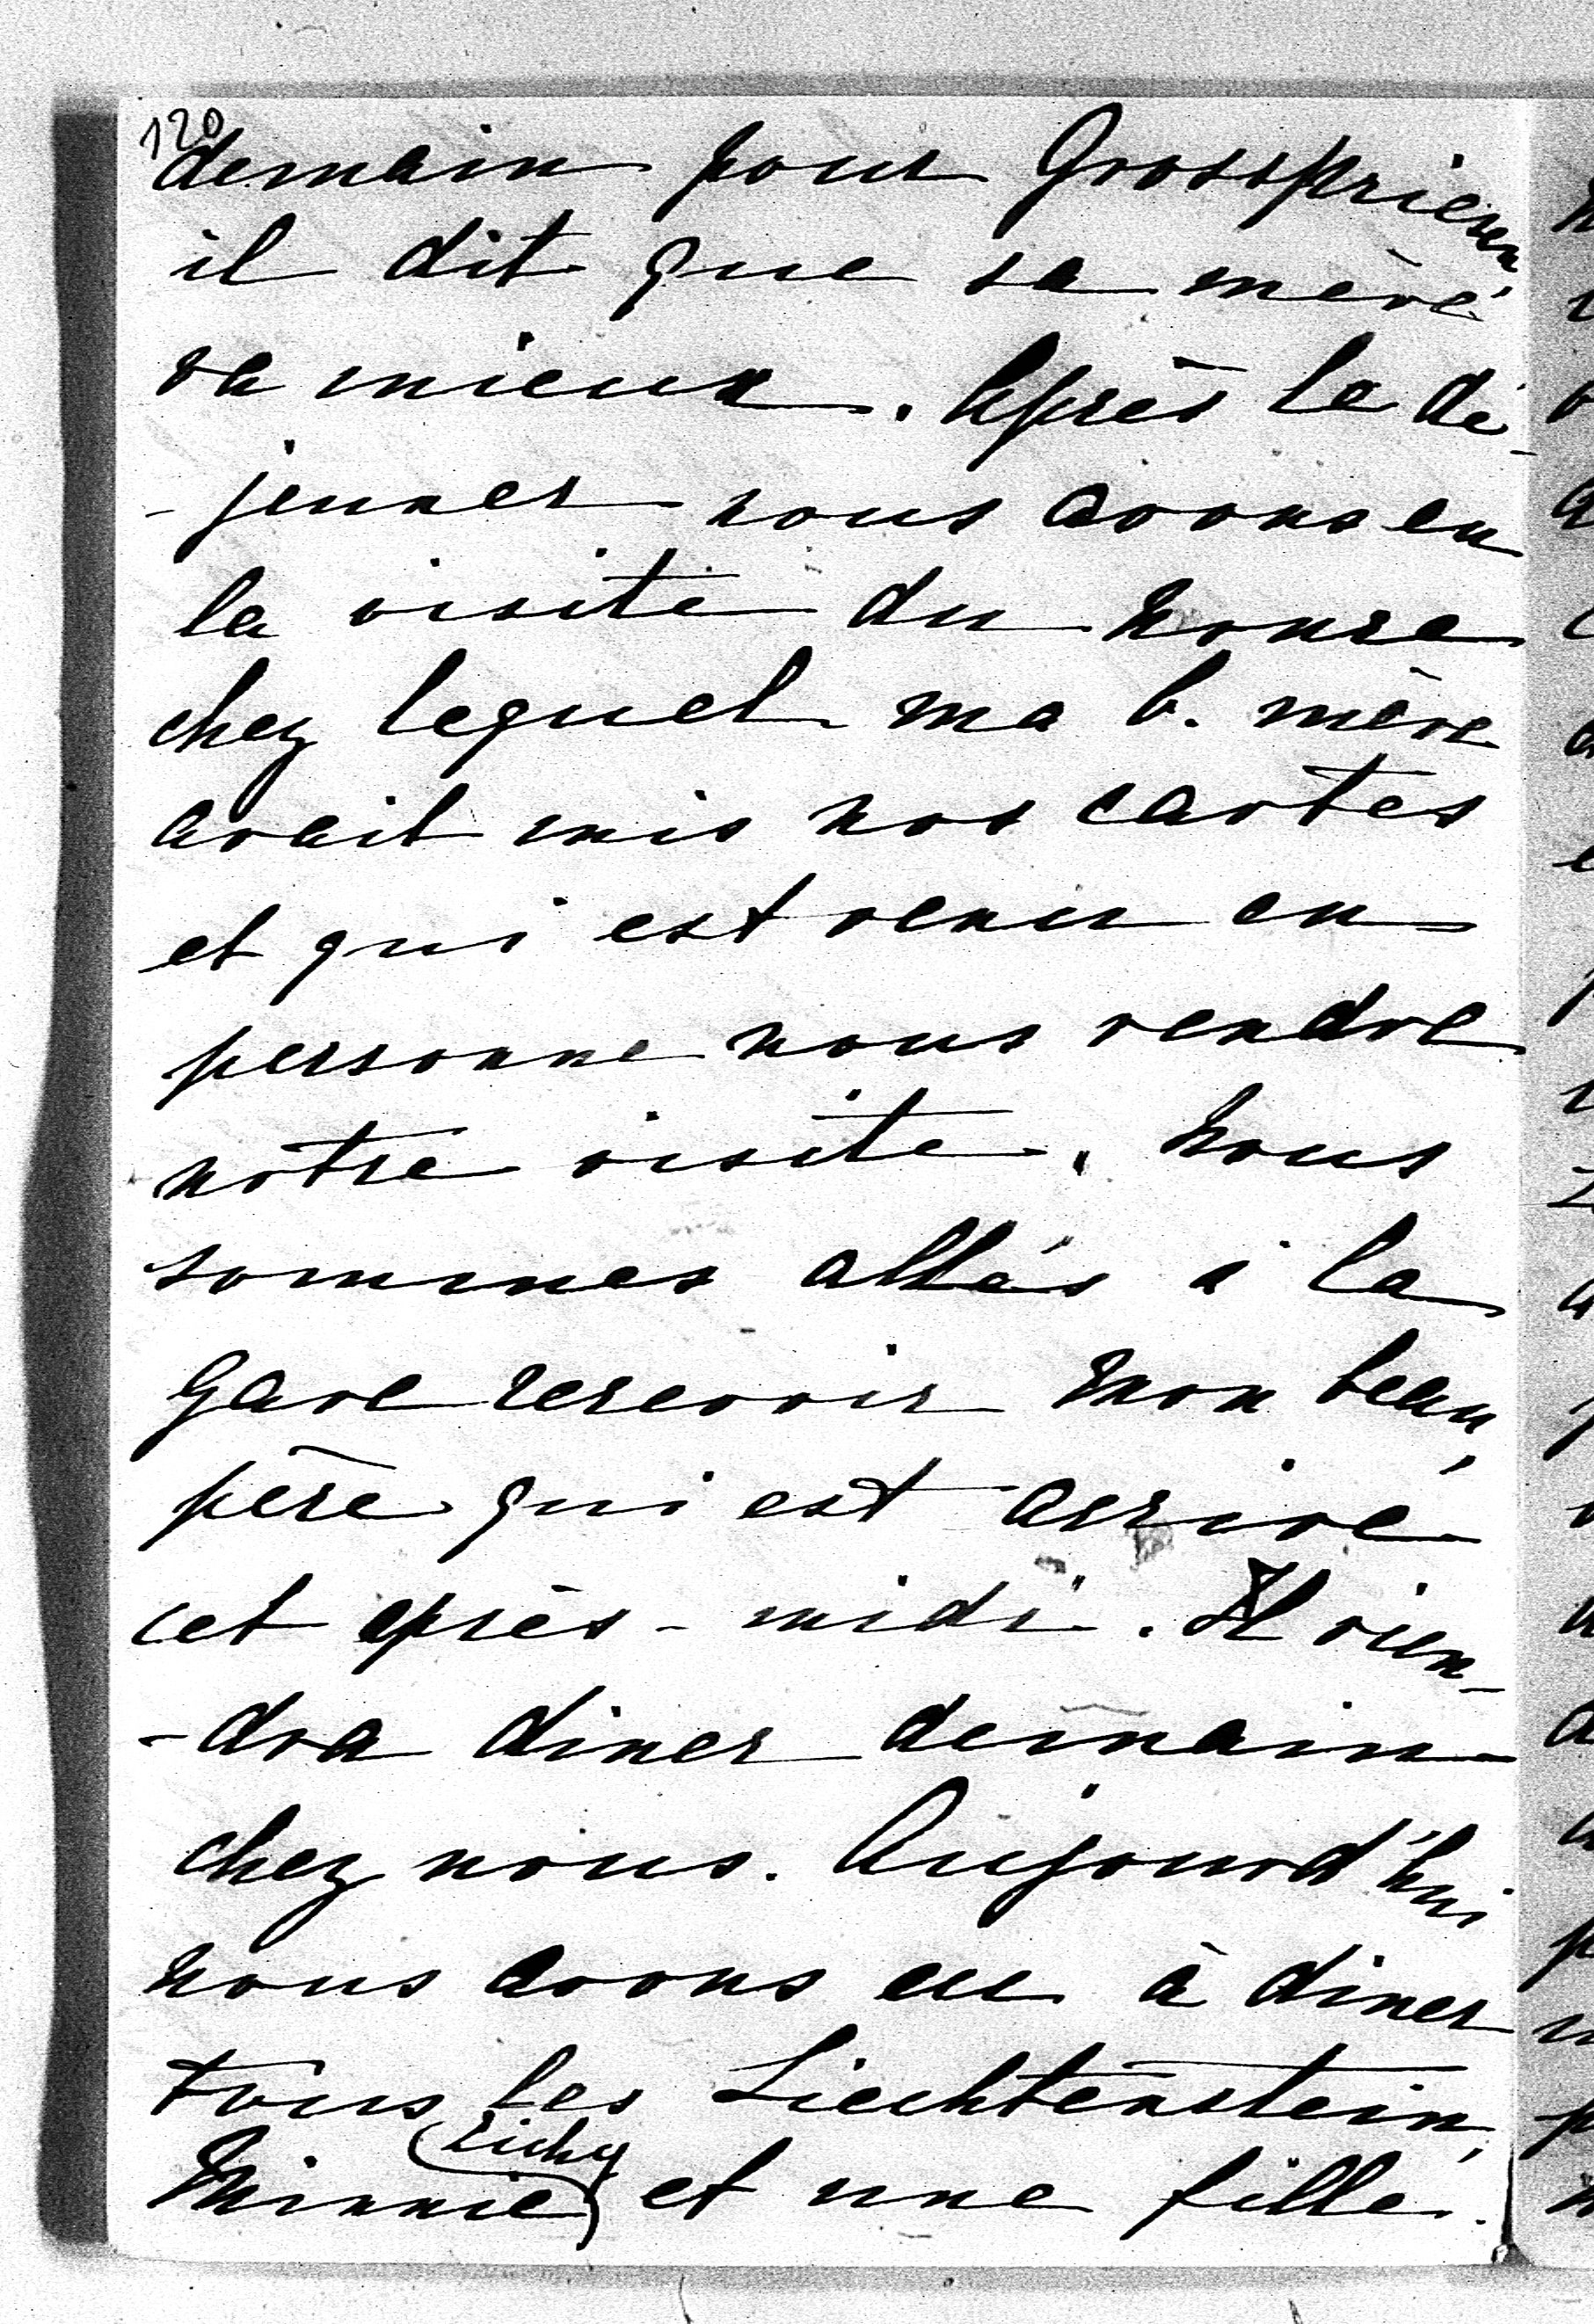 120
demain pour Grosspriesen,
il dit que sa mère
va mieux. Après le dé-
-jeuner nous avons eu
la visite du nonce
chez lequel ma b. mère
avait mis nos cartes
et qui est venu en
personne nous rendre
notre visite. Nous
sommes allés à la
gare recevoir mon beau,
père qui est arrivé
cet après-midi. Il vien-
-dra diner demain
chez nous. Aujourd'hui
nous avons eu à diner
tous les Liechtenstein,
(Zichy)
Minnie et une fille.